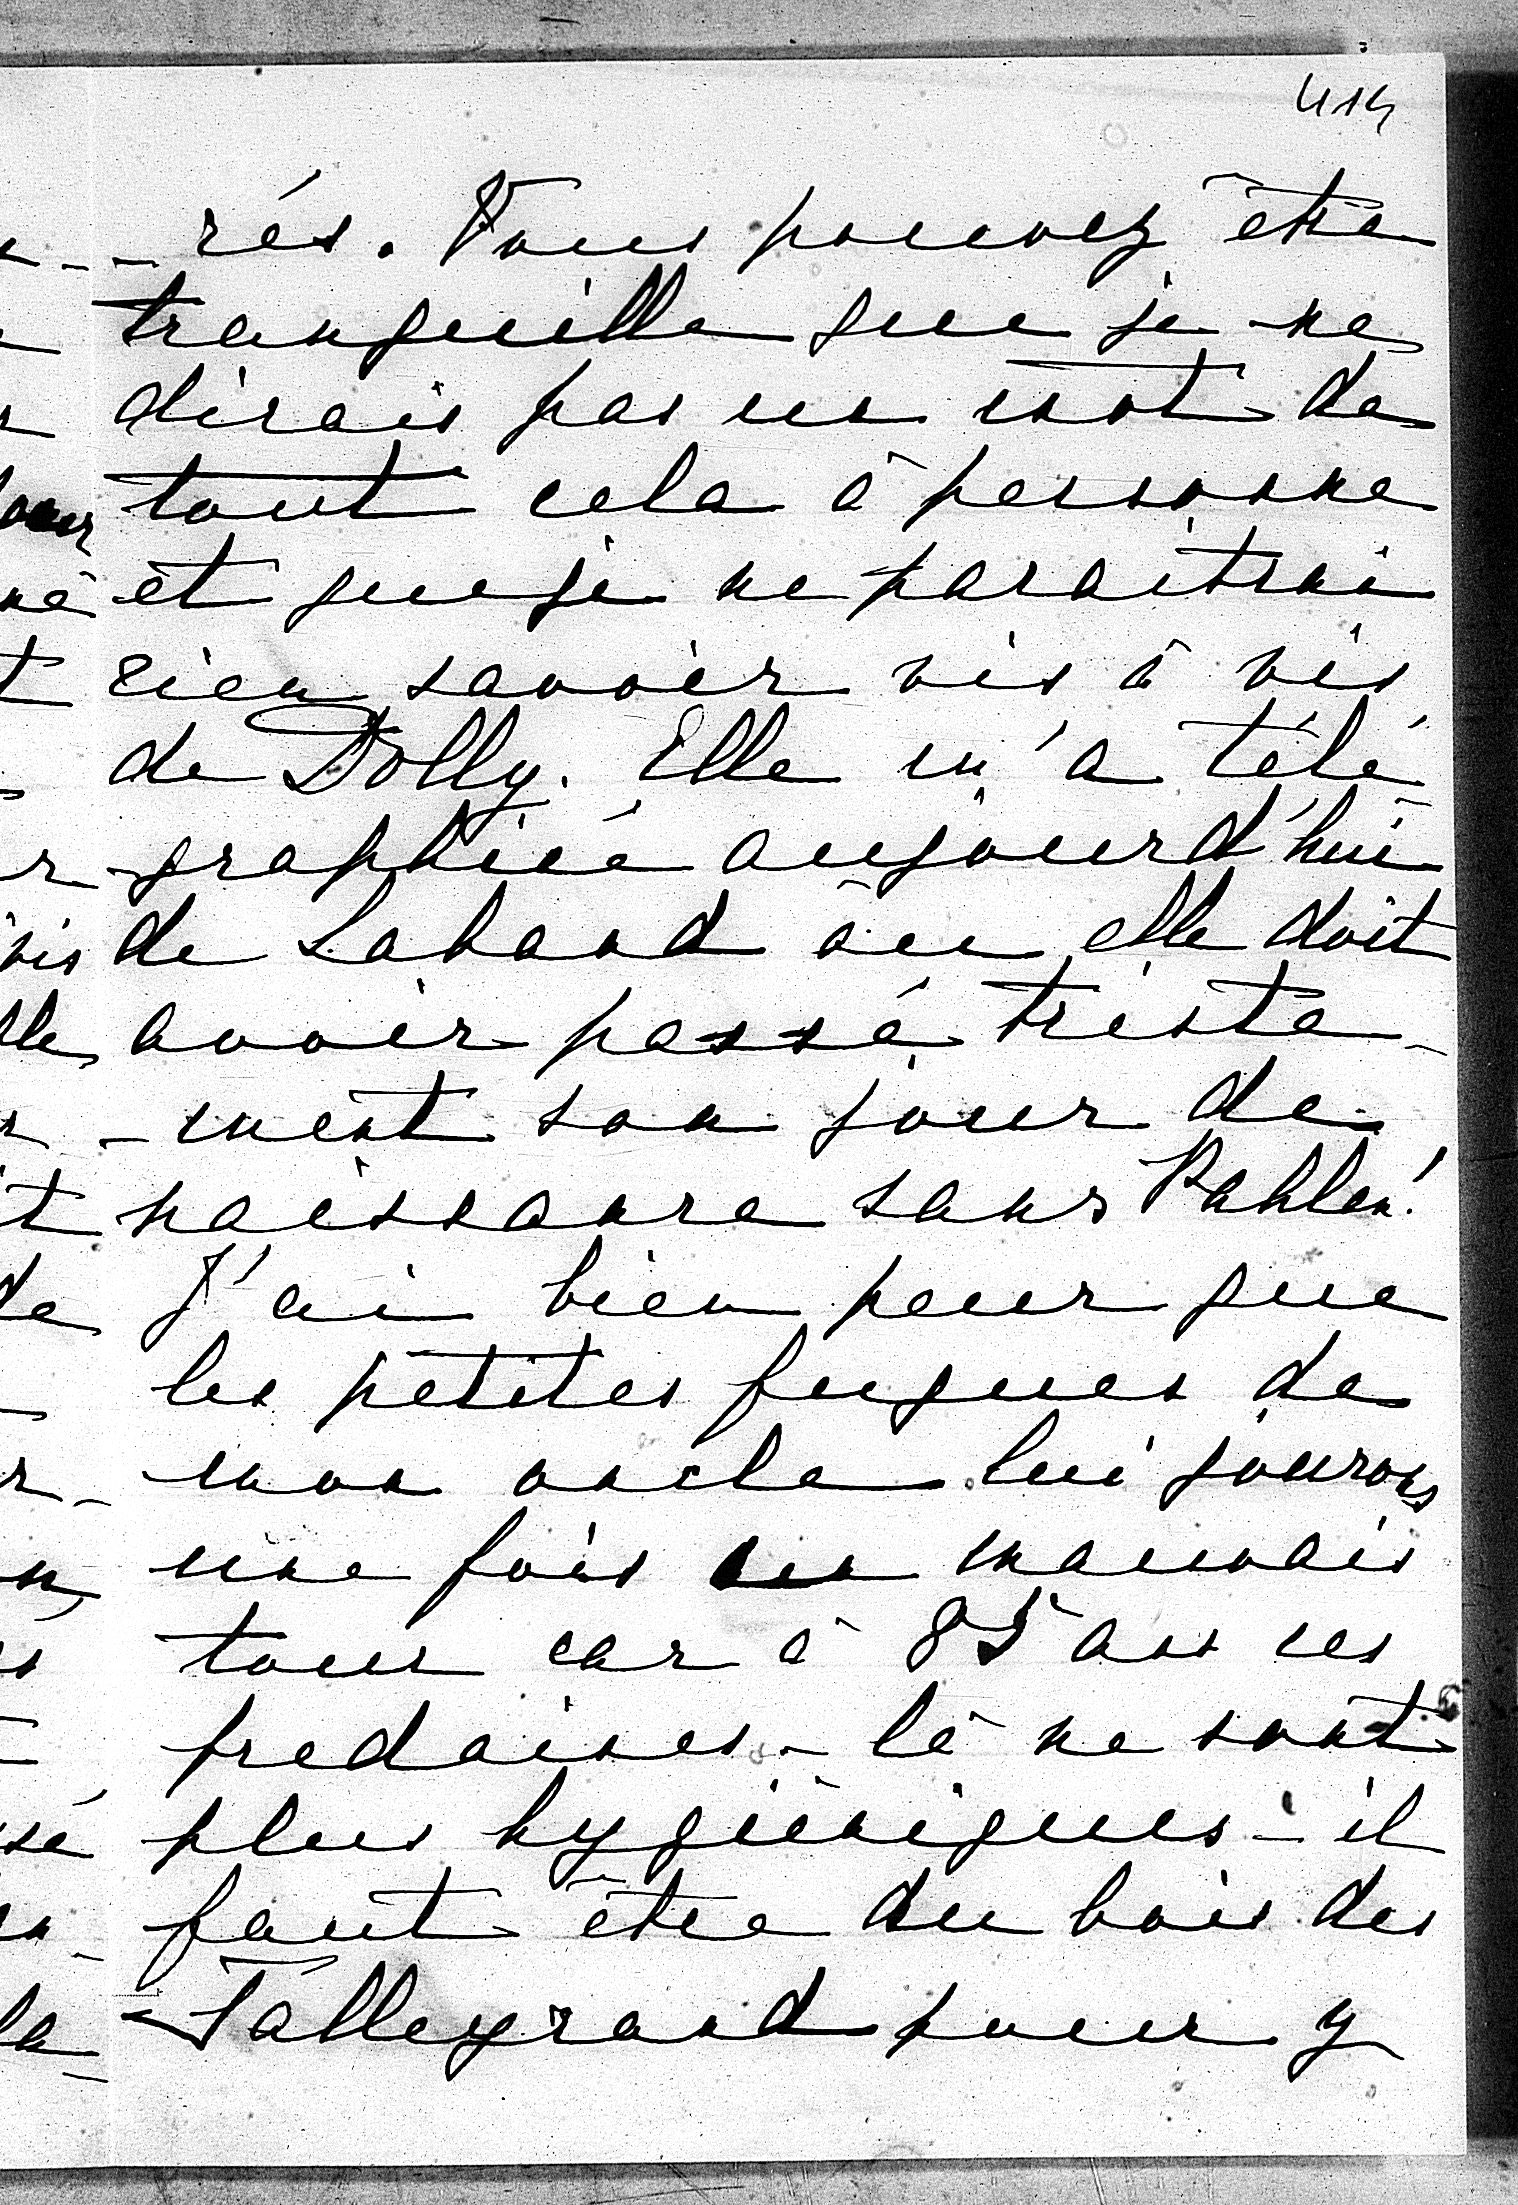 414
rés. Vous pouvez être
tranquille que je ne
dirais pas un mot de
tout cela à personne
et que je ne paraîtrai
rien savoir vis à vis
de Dolly. Elle m'a télé-
graphiée aujourd'hui
de Laband où elle doit
avoir passé triste-
-ment son jour de
naissance sans Pahlen!
J'ai bien peur que
les petites fugues de
mon oncle lui jourons
une fois un mauvais
tour car à 85 ans ces
fredaines-là ne sont
plus hygiéniques - il
faut être du bois des
Talleyrand pour y